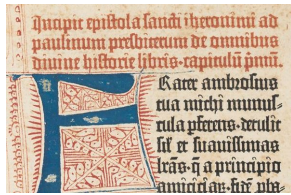 Incipit epistola sancti iheronimi ad
paulinum presbiterum de omnibus
divine historie libris· capitulū p̄mū.
Frater ambrosius
tua michi munus-
cula pferens· detulit
sil' et suavissimas
lr̄as· q̄ a principio